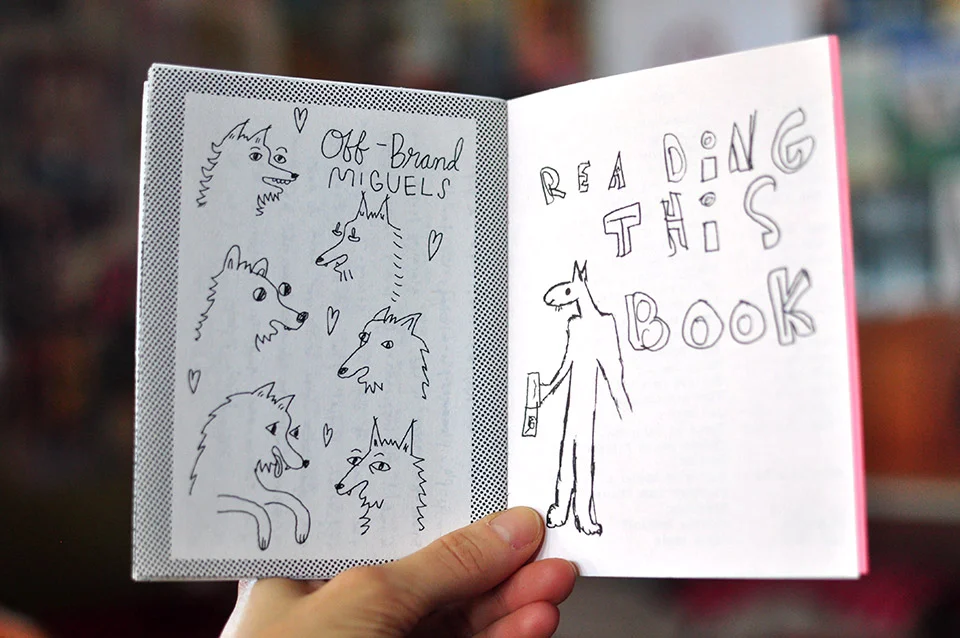 Off-Brand
MIGUELS
READiNG
THiS
BOOK